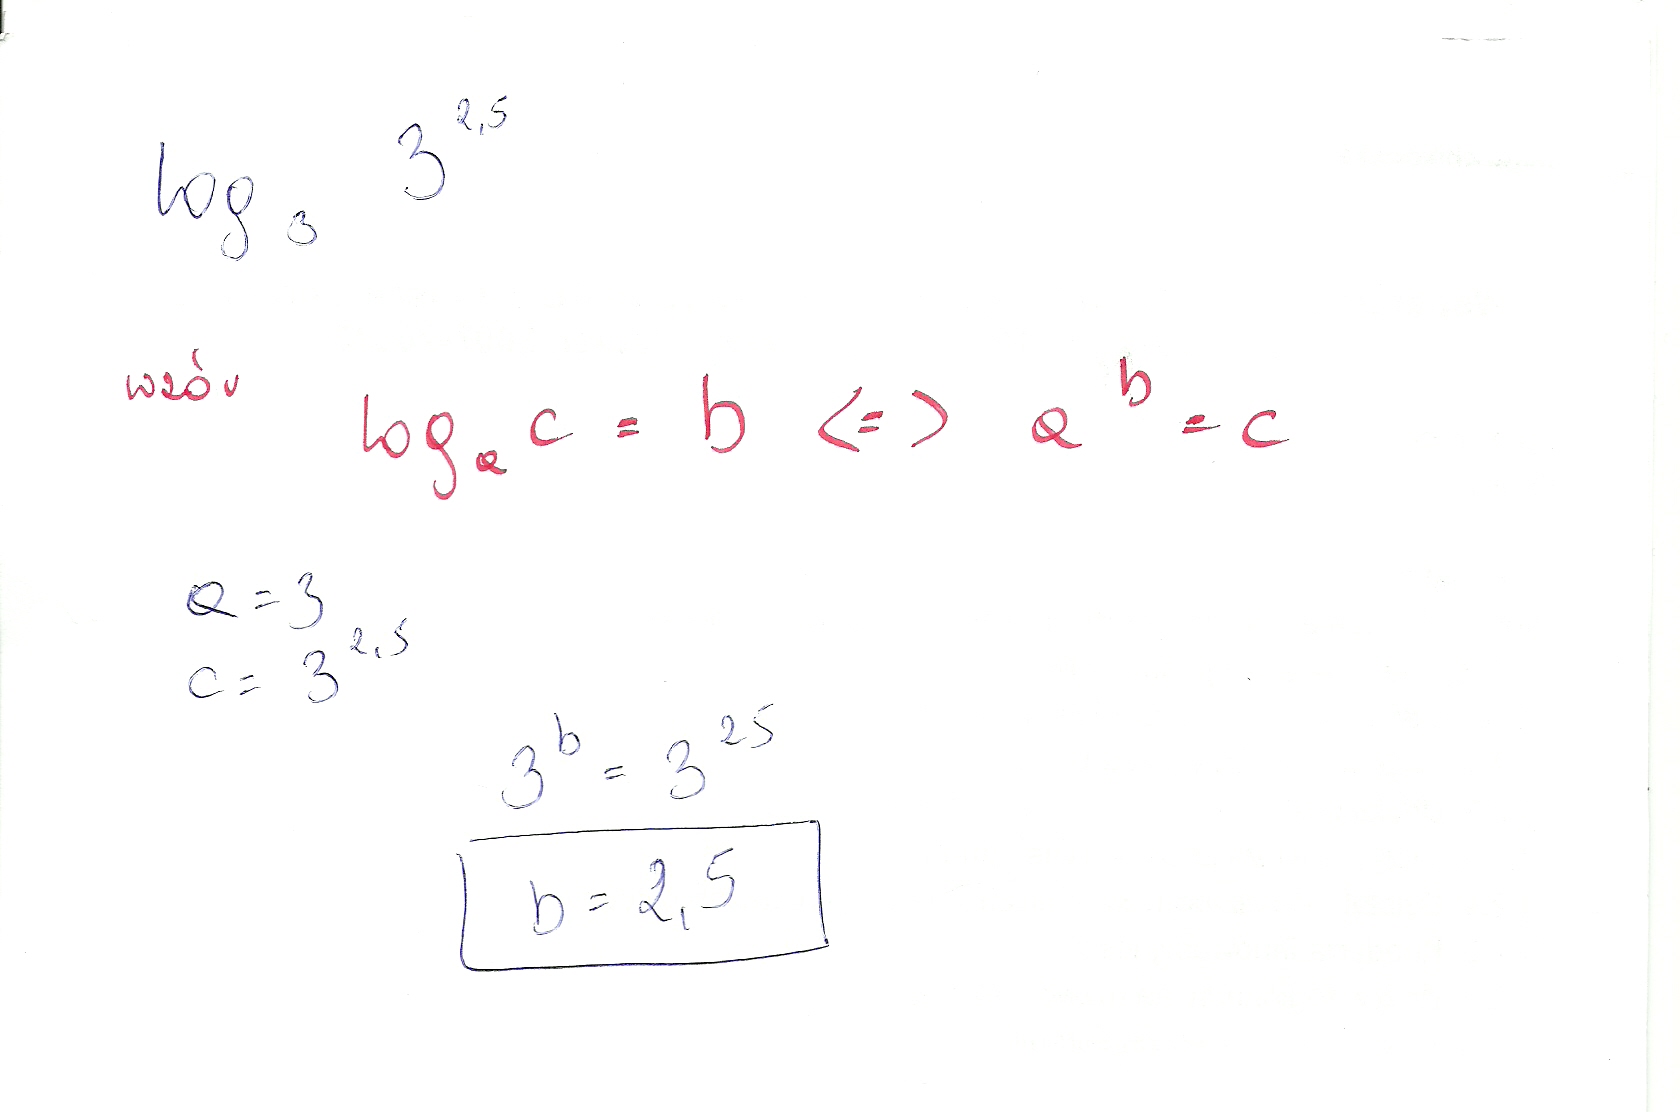 log₃ 3^2,5
wzór
logₐ c = b <=> a^b = c
a = 3
c = 3^2,5
3^b = 3^25
b = 2,5